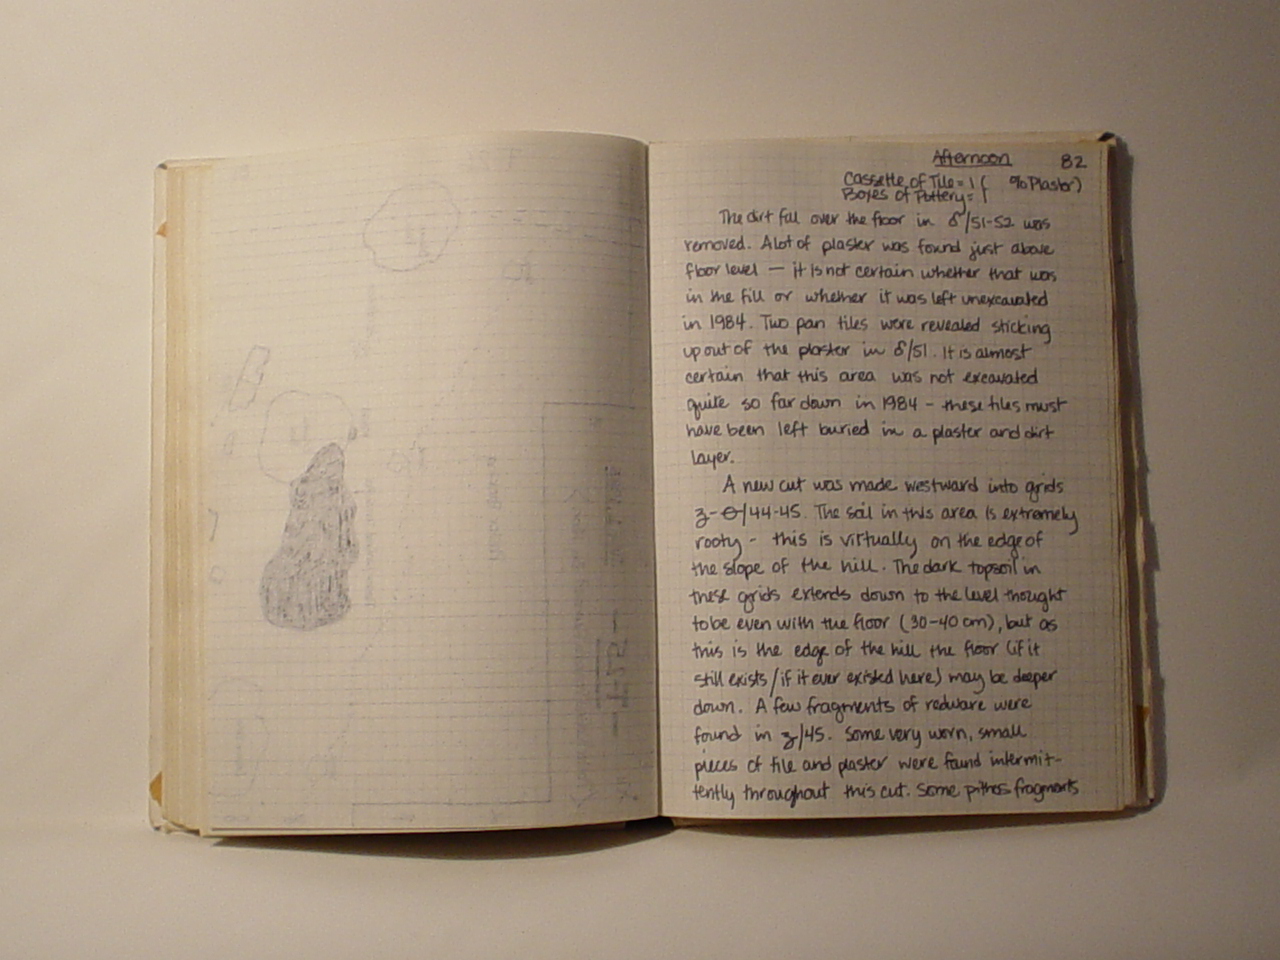 Afternoon 82
Cassette of Tile = 1 ( % Plaster)
Boxes of Pottery = 1
The dirt fill over the floor in δ/51-52 was
removed. A lot of plaster was found just above
floor level — it is not certain whether that was
in the fill or whether it was left unexcavated
in 1984. Two pan tiles were revealed sticking
up out of the plaster in δ/51. It is almost
certain that this area was not excavated
quite so far down in 1984 - these tiles must
have been left buried in a plaster and dirt
layer.
A new cut was made westward into grids
z-θ/44-45. The soil in this area is extremely
rooty - this is virtually on the edge of
the slope of the hill. The dark topsoil in
these grids extends down to the level thought
to be even with the floor (30-40 cm), but as
this is the edge of the hill the floor (if it
still exists/if it ever existed here) may be deeper
down. A few fragments of redware were
found in z/45. Some very worn, small
pieces of tile and plaster were found intermit-
tently throughout this cut. Some pithos fragments